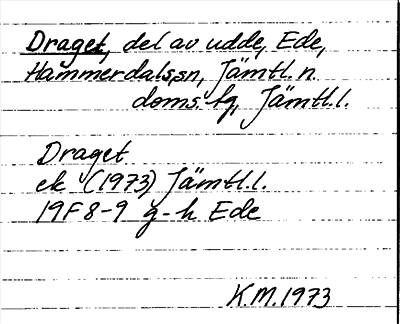 Draget, del av udde, Ede,
Hammerdals sn, Jämtl. n.
doms. fg, Jämtl. l.
Draget
ek (1973) Jämtl. l.
19F 8-9 g-h Ede
K.M. 1973